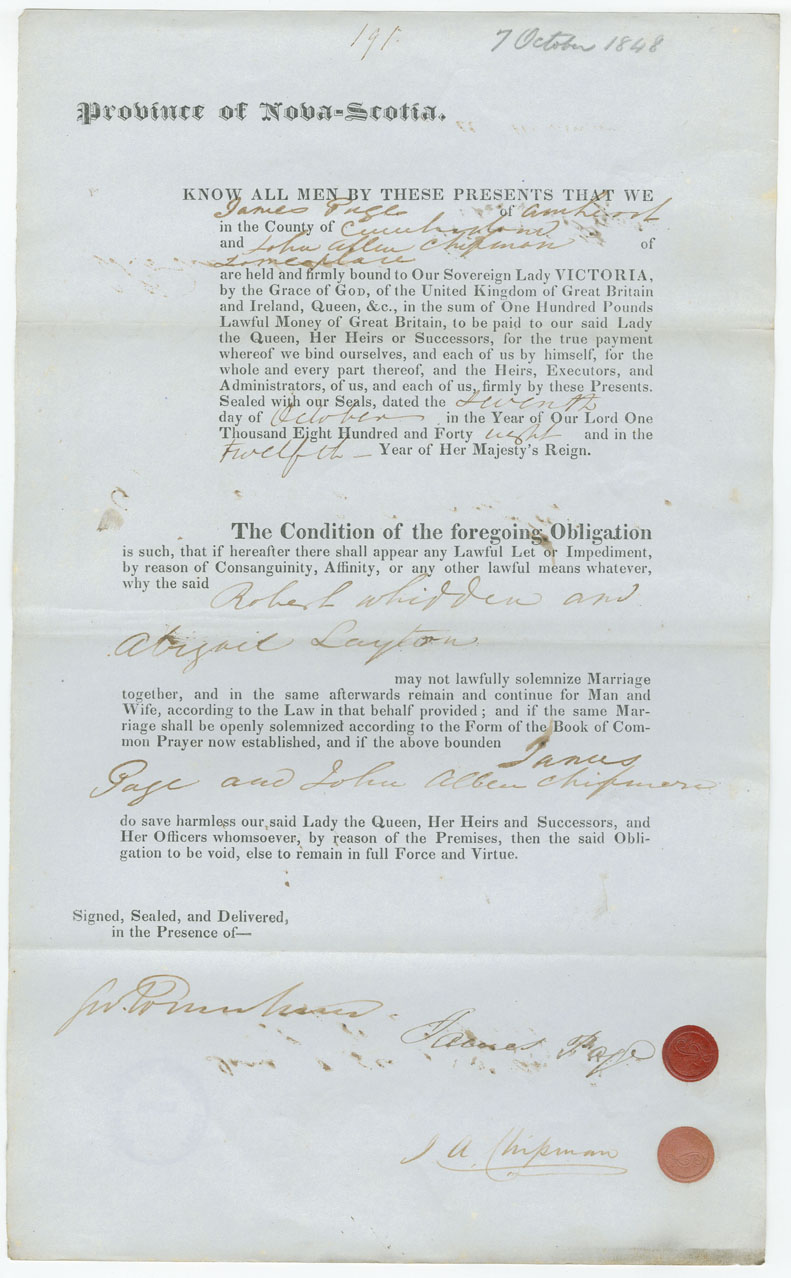 191.
7 October 1848
Province of Nova-Scotia.
KNOW ALL MEN BY THESE PRESENTS THAT WE
James Page of Amherst
in the County of Cumberland
and John Allen Chipman of
Same place
are held and firmly bound to Our Sovereign Lady VICTORIA,
by the Grace of GOD, of the United Kingdom of Great Britain
and Ireland, Queen, &c., in the sum of One Hundred Pounds
Lawful Money of Great Britain, to be paid to our said Lady
the Queen, Her Heirs or Successors, for the true payment
whereof we bind ourselves, and each of us by himself, for the
whole and every part thereof, and the Heirs, Executors, and
Administrators, of us, and each of us, firmly by these Presents.
Sealed with our Seals, dated the Seventh
day of October in the Year of Our Lord One
Thousand Eight Hundred and Forty eight and in the
Twelfth – Year of Her Majesty's Reign.
The Condition of the foregoing Obligation
is such, that if hereafter there shall appear any Lawful Let or Impediment,
by reason of Consanguinity, Affinity, or any other lawful means whatever,
why the said Robert Whidden and
Abigail Layton
may not lawfully solemnize Marriage
together, and in the same afterwards remain and continue for Man and
Wife, according to the Law in that behalf provided; and if the same Mar-
riage shall be openly solemnized according to the Form of the Book of Com-
mon Prayer now established, and if the above bounden James
Page and John Allen Chipman
do save harmless our said Lady the Queen, Her Heirs and Successors, and
Her Officers whomsoever, by reason of the Premises, then the said Obli-
gation to be void, else to remain in full Force and Virtue.
Signed, Sealed, and Delivered,
in the Presence of—
James Page
J A Chipman